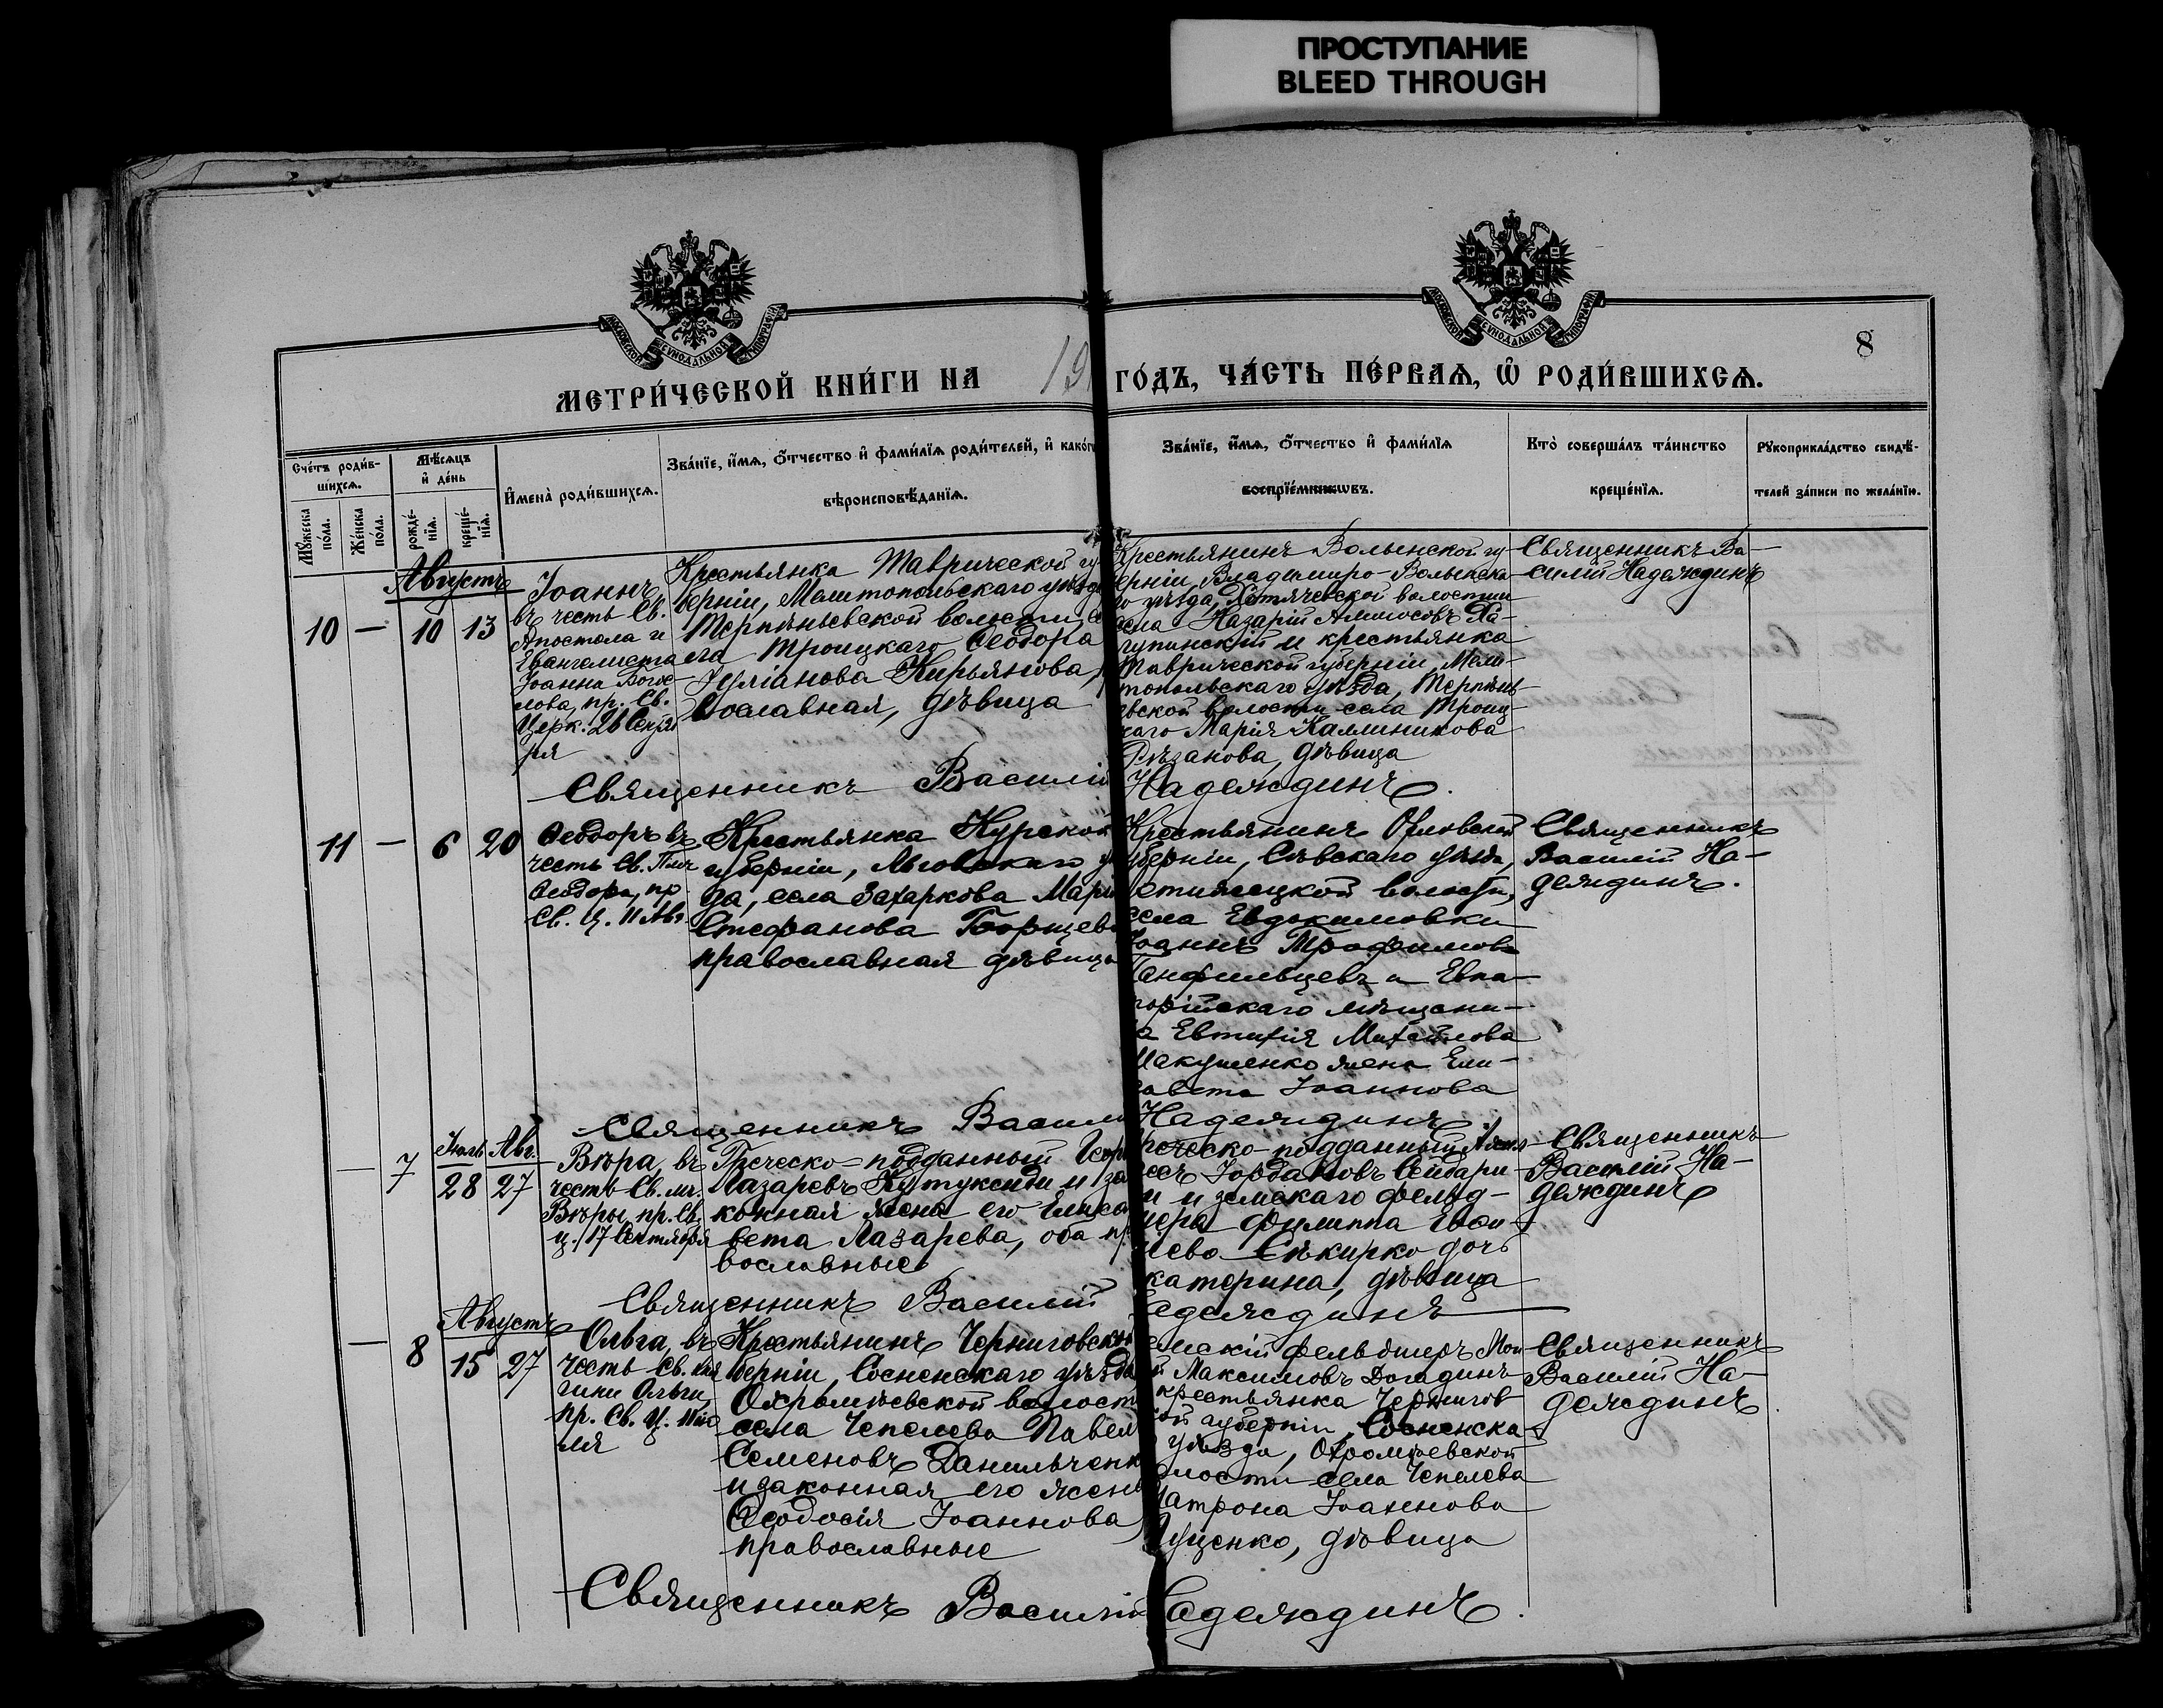 ПРОСТУПАНИЕ
BLEED THROUGH
МОСКОВСКОЙ СѴНОДАЛЬНОЙ ТИПОГРАФІИ
МОСКОВСКОЙ СѴНОДАЛЬНОЙ ТИПОГРАФІИ
8
МЕТРИ́ЧЕСКОЙ КНИ́ГИ НА 19
ГО́ДЪ, ЧА́СТЬ ПЕ́РВАѦ, Ѡ РОДИ́ВШИХСѦ.
Сче́тъ роди́в-
шихсѧ.
Мꙋ́жеска по́ла.
Же́нска по́ла.
Мѣ́сѧцъ
и҆ де́нь
рожде́-
нїѧ.
креще́-
нїѧ.
И҆мена̀ роди́вшихсѧ.
Зва́нїе, и҆́мѧ, ѻ҆́тчество и҆ фами́лїѧ роди́телей, и҆ како́гѡ
вѣроисповѣ́данїѧ.
Зва́нїе, и҆́мѧ, ѻ҆́тчество и҆ фами́лїѧ
воспрїе́мникѡвъ.
Кто̀ соверша́лъ та́инство
креще́нїѧ.
Рꙋкоприкла́дство свидѣ́-
телей за́писи по жела́нїю.
Августъ
10 — 10 13
Іоаннъ,
въ честь Св.
Апостола и
Евангелиста
Іоанна Богос-
лова, пр. Св.
Церк. 26 Сентяб
ря
Крестьянка Таврической гу
берніи, Мелитопольскаго уѣзда
Терпѣньевской волости, с
ела Троицкаго Ѳеодора
Іуліанова Кирьянова, п
вославная, дѣвица
Крестьянинъ Волынской гу-
ерніи Владимиро-Волынска-
го уѣзда, волости
села Назарій Амосовъ Ха-
лупинскій и крестьянка
Таврической губерніи, Мели-
топольскаго уѣзда, Терпѣнь-
евской волости села Троиц-
каго Марія Каллиникова
Рѣзанова, дѣвица
Священникъ Ва-
силій Надеждинъ
Священникъ Василій Надеждинъ.
11 — 6 20
Ѳеодоръ въ
честь Св. Муч
Ѳеодора, пр
Св. Ц. 11 Авг.
Крестьянка Курской
губерніи, Льговскаго у
да, села Захаркова Марі
Стефанова Борщева
православная дѣвица
Крестьянинъ Орловской
уберніи, Сѣвскаго уѣзда,
волости,
села Евдокимовки
Іоаннъ Трофимовъ
Панфильцевъ и Евпа-
торійскаго мѣщани-
на Евтихія Михайлова
Макушенко жена Ели-
савета Іоаннова
Священникъ
Василій На-
деждинъ.
Священникъ Васили Надеждинъ.
Іюль Авг.
— 7 28 27
Вѣра, въ
честь Св. мч.
Вѣры, пр. Св.
ц. 17 Сентября
Греческо-подданный Геор
Лазаревъ Кутуксиди и за
конная жена его Елиса
вета Лазарева, оба пр
вославные
реческо-подданный
Іордановъ
и и земскаго фельд-
шера Филиппа
Сѣкирко дочь
катерина, дѣвица
Священникъ
Василій На-
деждинъ
Священникъ Василій адеждинъ
Августъ
— 8 15 27
Ольга, въ
честь Св. Кня
гини Ольги,
пр. Св. Ц. 11 Ію
ля
Крестьянинъ Черниговской
берніи, Сосненскаго уѣзда
Охрамѣевской волост
села Чепелева Павелъ
Семеновъ Данильченк
и законная его жена
Ѳеодосія Іоаннова
православные
емскій фельдшеръ Мои
й Максимовъ Догадинъ
крестьянка Чернигов
кой губерніи, Сосненска-
уѣзда, Охромѣевской
лости села Чепелева
Матрона Іоаннова
Луценко, дѣвица
Священникъ
Василій На-
деждинъ.
Священникъ Василій адеждинъ.